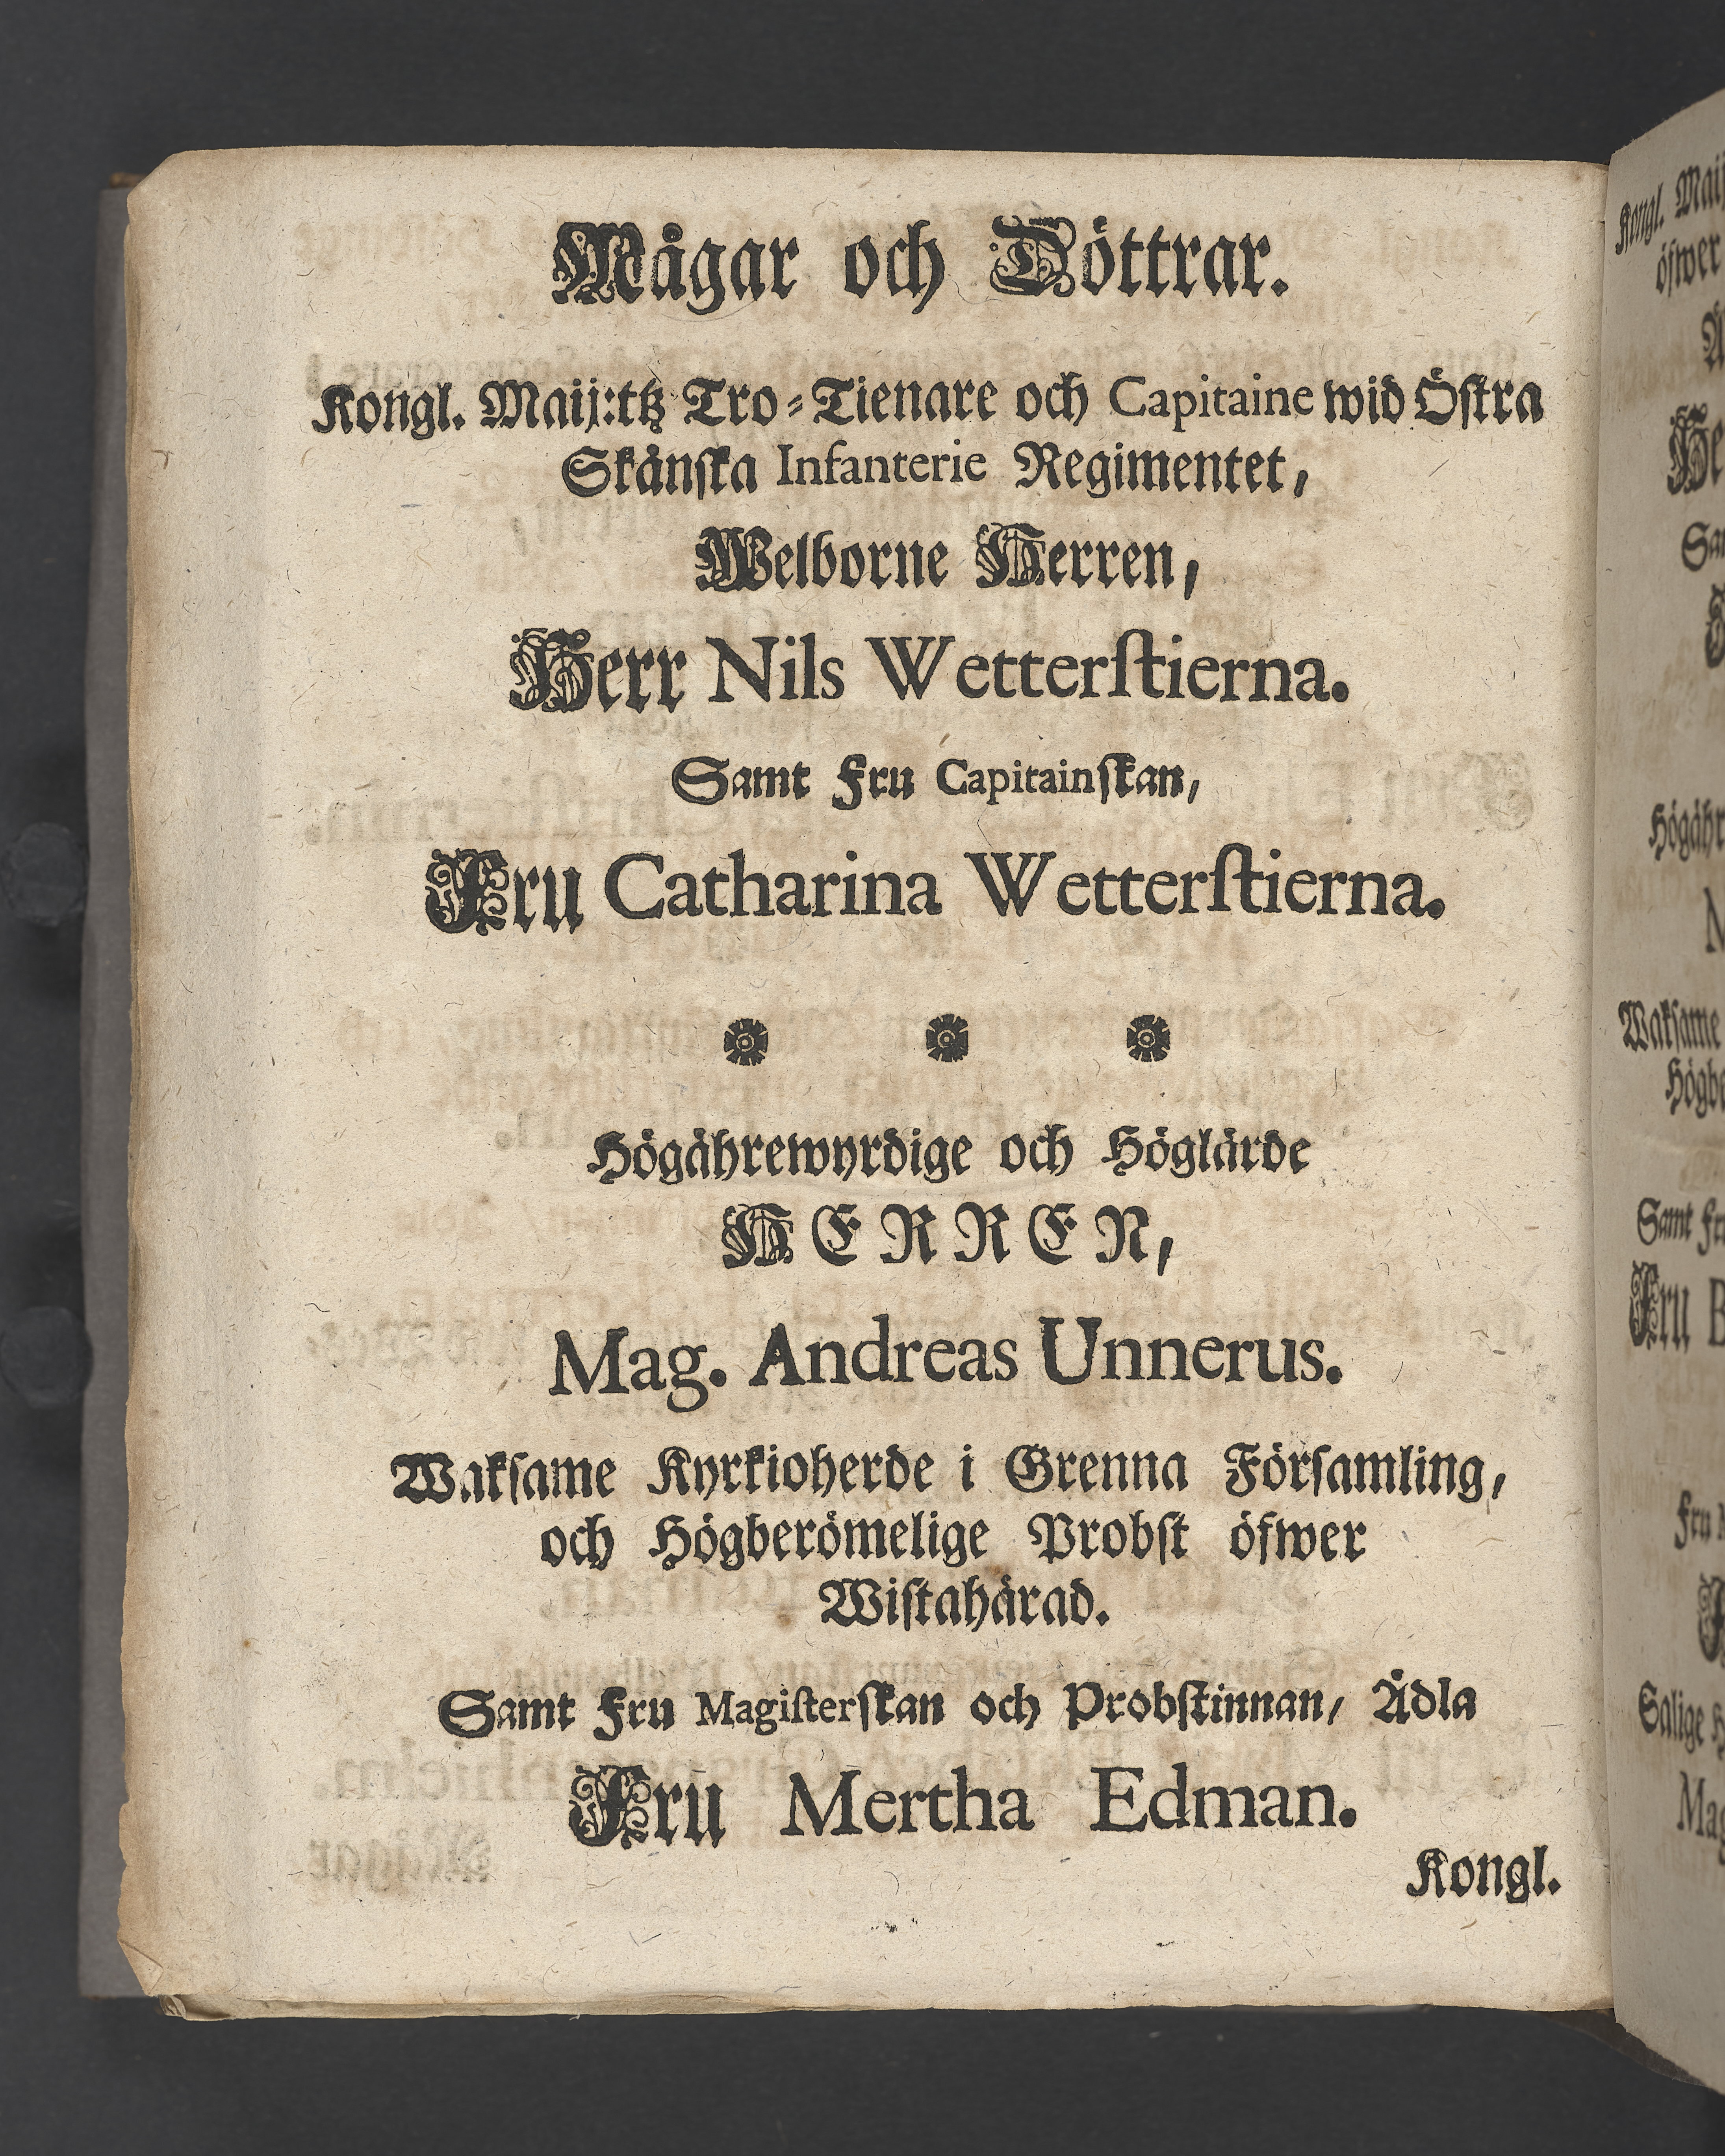 Mågar och Döttrar.
Kongl. Maij:ttz Tro-Tienare och Capitaine wid Östra
Skånska Infanterie Regimentet,
Welborne Herren,
Herr Nils Wetterstierna.
Samt Fru Capitainskan,
Fru Catharina Wetterstierna.
Högährewyrdige och Höglärde
HERREN,
Mag. Andreas Unnerus.
Waksame Kyrkioherde i Grenna Församling,
och Högberömelige Probst öfwer
Wistahärad.
Samt Fru Magisterskan och Probstinnan, Ädla
Fru Mertha Edman.
Kongl.
Kongl.
öfwer
Högähr
Waksame
Samt
Fru
Fru
Salige
Mag